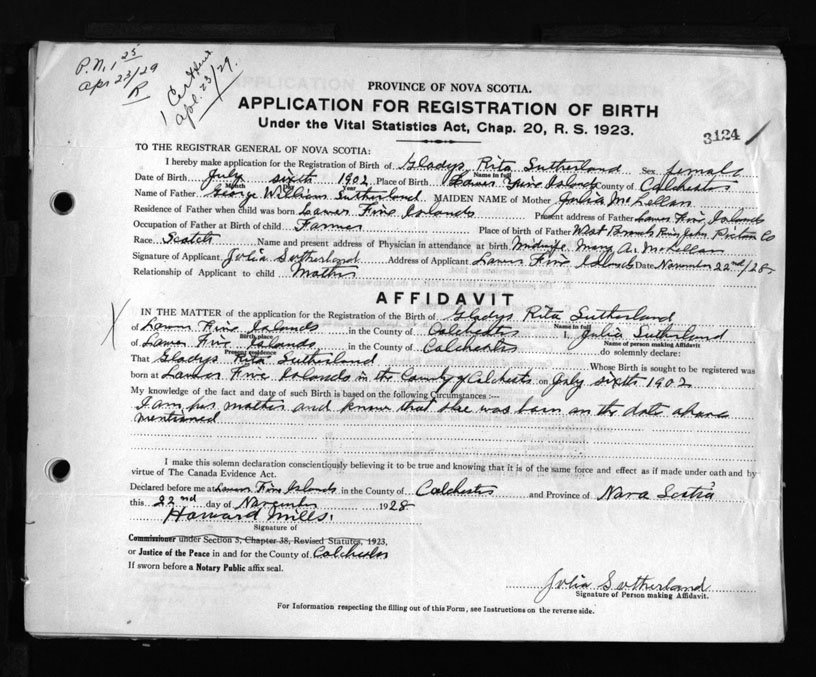 P.N. 1 25
Apr 23/29
R
1 Cert Issued
Apl. 23/29.
PROVINCE OF NOVA SCOTIA.
APPLICATION FOR REGISTRATION OF BIRTH
Under the Vital Statistics Act, Chap. 20, R. S. 1923.
3124
TO THE REGISTRAR GENERAL OF NOVA SCOTIA:
I hereby make application for the Registration of Birth of Gladys Rita Sutherland Sex female
Name in full
Date of Birth July sixth 1902 Place of Birth Lower Five Islands County of Colchester
Month Day Year
Name of Father George William Sutherland MAIDEN NAME of Mother Julia McLellan
Residence of Father when child was born Lower Five Islands Present address of Father Lower Five Islands
Occupation of Father at Birth of child Farmer Place of birth of Father West Branch River John Pictou Co
Race Scotch Name and present address of Physician in attendance at birth Midwife Mary A. McLellan
Signature of Applicant Julia Sutherland Address of Applicant Lower Five Islands Date November 22nd/28
Relationship of Applicant to child Mother
AFFIDAVIT
X
IN THE MATTER of the application for the Registration of the Birth of Gladys Rita Sutherland
Name in full
of Lower Five Islands in the County of Colchester I, Julia Sutherland
Birth place Name of person making Affidavit
of Lower Five Islands in the County of Colchester do solemnly declare:
Present residence
That Gladys Rita Sutherland Whose Birth is sought to be registered was
born at Lower Five Islands in the County of Colchester on July sixth 1902
My knowledge of the fact and date of such Birth is based on the following Circumstances :—
I am her mother and know that she was born on the date above
mentioned
I make this solemn declaration conscientiously believing it to be true and knowing that it is of the same force and effect as if made under oath and by
virtue of The Canada Evidence Act.
Declared before me at Lower Five Islands in the County of Colchester and Province of Nova Scotia
this 22nd day of November 1928
Howard Mills.
Signature of
Commissioner under Section 5, Chapter 38, Revised Statutes, 1923,
or Justice of the Peace in and for the County of Colchester
If sworn before a Notary Public affix seal.
Julia Sutherland
Signature of Person making Affidavit.
For Information respecting the filling out of this Form, see Instructions on the reverse side.